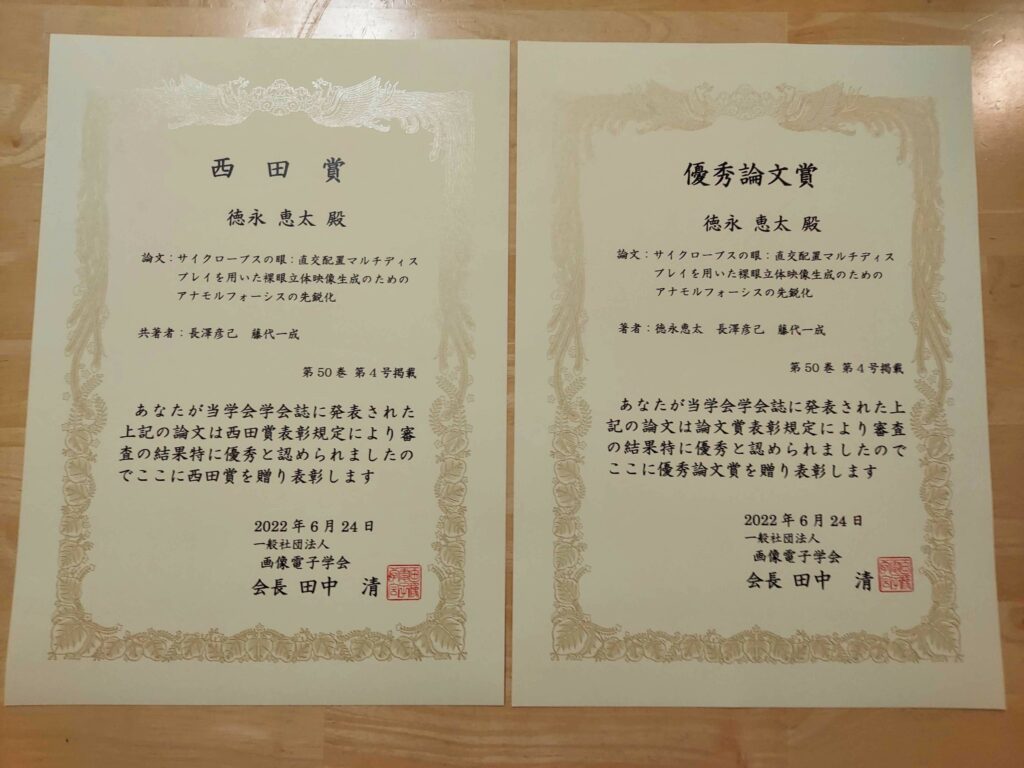 西田賞
徳永 恵太 殿
論文：サイクロープスの眼：直交配置マルチディス
プレイを用いた裸眼立体映像生成のための
アナモルフォーシスの先鋭化
共著者：長澤彦己　藤代一成
第50巻 第4号掲載
あなたが当学会学会誌に発表された
上記の論文は西田賞表彰規定により審
査の結果特に優秀と認められましたの
でここに西田賞を贈り表彰します
2022年6月24日
一般社団法人
画像電子学会
会長 田中　清
優秀論文賞
徳永 恵太 殿
論文：サイクロープスの眼：直交配置マルチディス
プレイを用いた裸眼立体映像生成のための
アナモルフォーシスの先鋭化
著者：徳永恵太　長澤彦己　藤代一成
第50巻 第4号掲載
あなたが当学会学会誌に発表された上
記の論文は論文賞表彰規定により審査
の結果特に優秀と認められましたので
ここに優秀論文賞を贈り表彰します
2022年6月24日
一般社団法人
画像電子学会
会長 田中　清